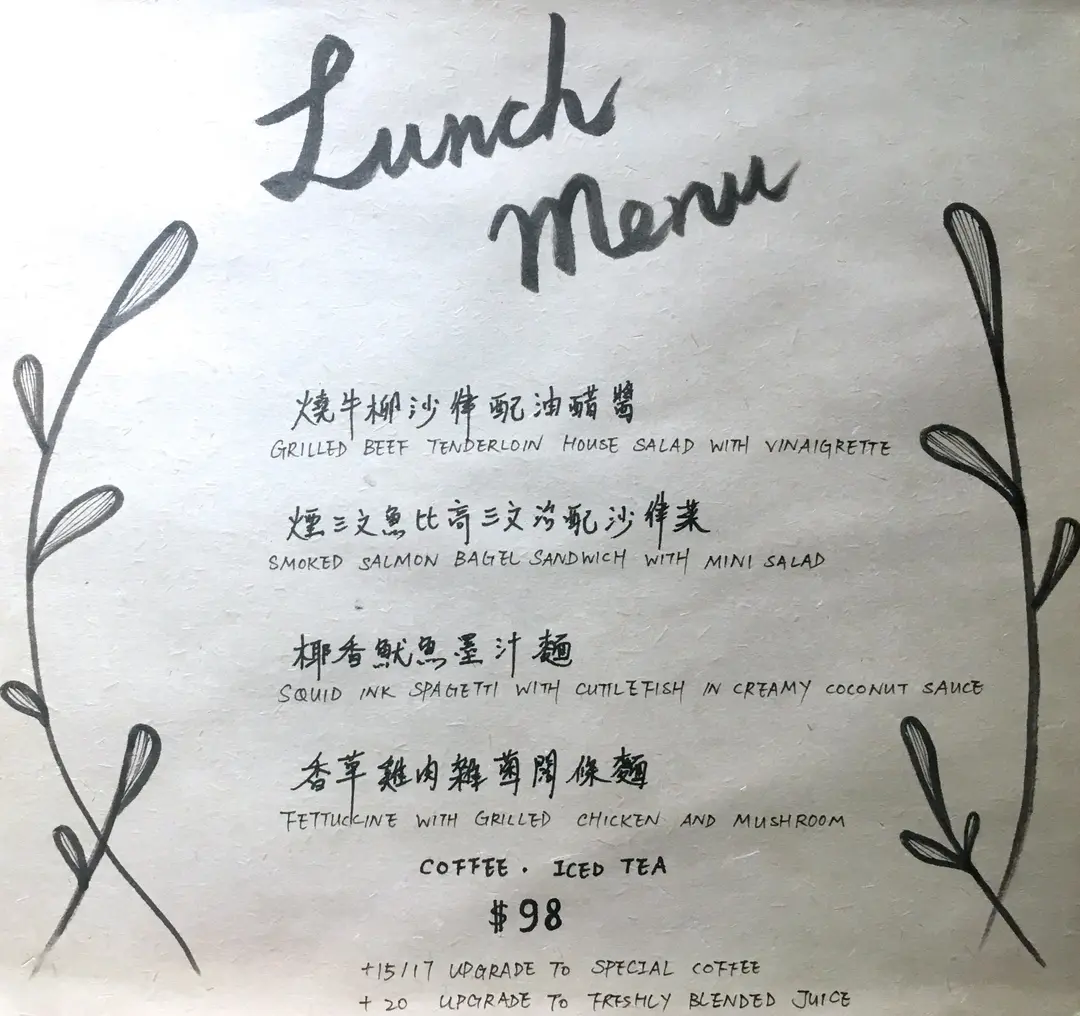 Lunch
Menu
燒牛柳沙律配油醋醬
GRILLED BEEF TENDERLOIN HOUSE SALAD WITH VINAIGRETTE
煙三文魚比高三文治配沙律菜
SMOKED SALMON BAGEL SANDWICH WITH MINI SALAD
椰香魷魚墨汁麵
SQUID INK SPAGETTI WITH CUTTLEFISH IN CREAMY COCONUT SAUCE
香草雞肉雜菌闊條麵
FETTUCCINE WITH GRILLED CHICKEN AND MUSHROOM
COFFEE · ICED TEA
$98
+15/17 UPGRADE TO SPECIAL COFFEE
+ 20 UPGRADE TO FRESHLY BLENDED JUICE